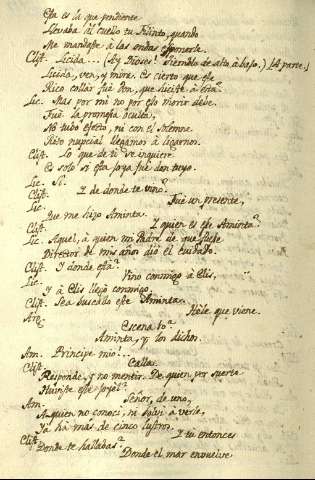 Esta es la que pendiente
Llevaba al cuello tu Filinto, quando
Me mandaste á las ondas esponerle.
Clist. Licida... (Ay Dioses! Tiemblo de alto, á bajo.) (A parte.)
Licida, ven, y mira. Es cierto que este
Rico collár fué don, que hiciste á
Lic. Mas por mi no por eso morir debe.
Fué la promesa oculta,
No tubo efecto, ni con el solemne
Rito nupcial llegamos á ligarnos.
Clist. Lo que de ti se inquiere
Es solo si esta joya fué don tuyo.
Lic. Si.
Clist. Y de donde te vino?
Lic. Fué un presente,
Que me hijo Aminta.
Clist. Y quien es ese Aminta?
Lic. Aquel, á quien mi Padre de que fuese
Director de mis años dió el cuidado.
Clist. Y donde está?
Lic. Vino conmigo á Elis,
Y á Elis llegó conmigo.
Clist. Sea buscado este Aminta.
Arg. Hele que viene.
Escena 10.ª
Aminta, y los dichos.
Am. Principe mio!..
Clist. Calla.
Responde, y no mentir. De quien por suerte
Huviste esse joyel?
Am. Señor, de uno,
A quien no conoci, ni bolvi á verle,
Ya há mas de cinco lustros.
Clist. Y tu entonces
Donde te hallabas?
Donde el mar envuelve